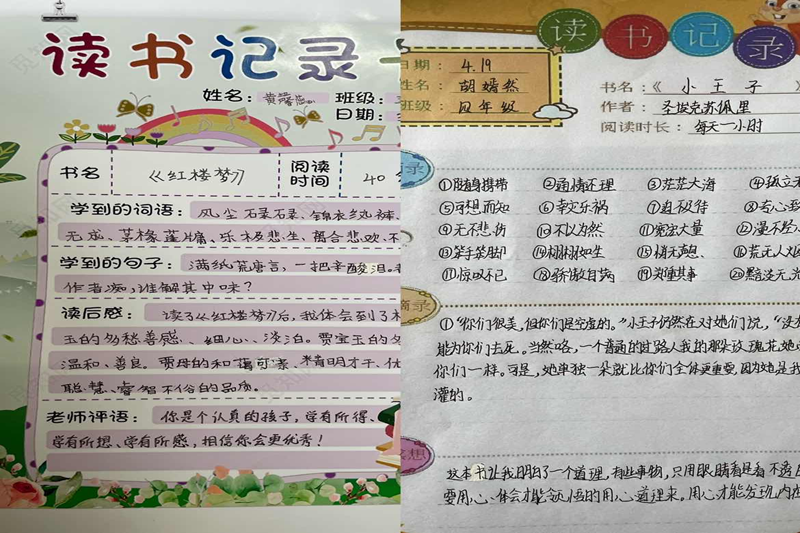 读书记录
姓名： 班级：
日期：
书名 《红楼梦》 阅读时间 40
学到的词语：风尘碌碌、锦衣纨裤、
茅椽蓬牖、乐极悲生、离合悲欢、
学到的句子：满纸荒唐言，一把辛酸泪。
作者痴，谁解其中味？
读后感：读了《红楼梦》后，我体会到了
玉的多愁善感、细心、淡泊。贾宝玉的
温和、善良。贾母的和蔼可亲、精明才干、
聪慧、睿智不俗的品质。
老师评语：你是个认真的孩子，学有所得、
学有所想、学有所感，相信你会更优秀！
读书记录
日期：4.19
姓名：胡嫣然
班级：四年级
书名：《小王子》
作者：圣埃克苏佩里
阅读时长：每天一小时
录
①随身携带 ②通情达理 ③茫茫大海 ④孤立
⑤可想而知 ⑥幸灾乐祸 ⑦迫不及待 ⑧专心
⑨无不悲伤 ⑩不以为然 ⑪宽宏大量 ⑫漫不经
⑬笨手笨脚 ⑭栩栩如生 ⑮稍无声息 ⑯荒无人
⑰惊叹不已 ⑱骄傲自满 ⑲煞有其事 ⑳黯淡无光
摘录
①“你们很美，但你们是空虚的。”小王子仍然在对她们说，“没
能为你们去死。当然咯，一个普通的过路人我的那朵玫瑰花
你们一样。可是，她单独一朵就比你们全体更重要，因为她是我
灌的。
感想
这本书让我明白了一个道理，有些事物，只用眼睛看是看不透
要用心、体会才能领悟的用心道理来。用心才能发现内在